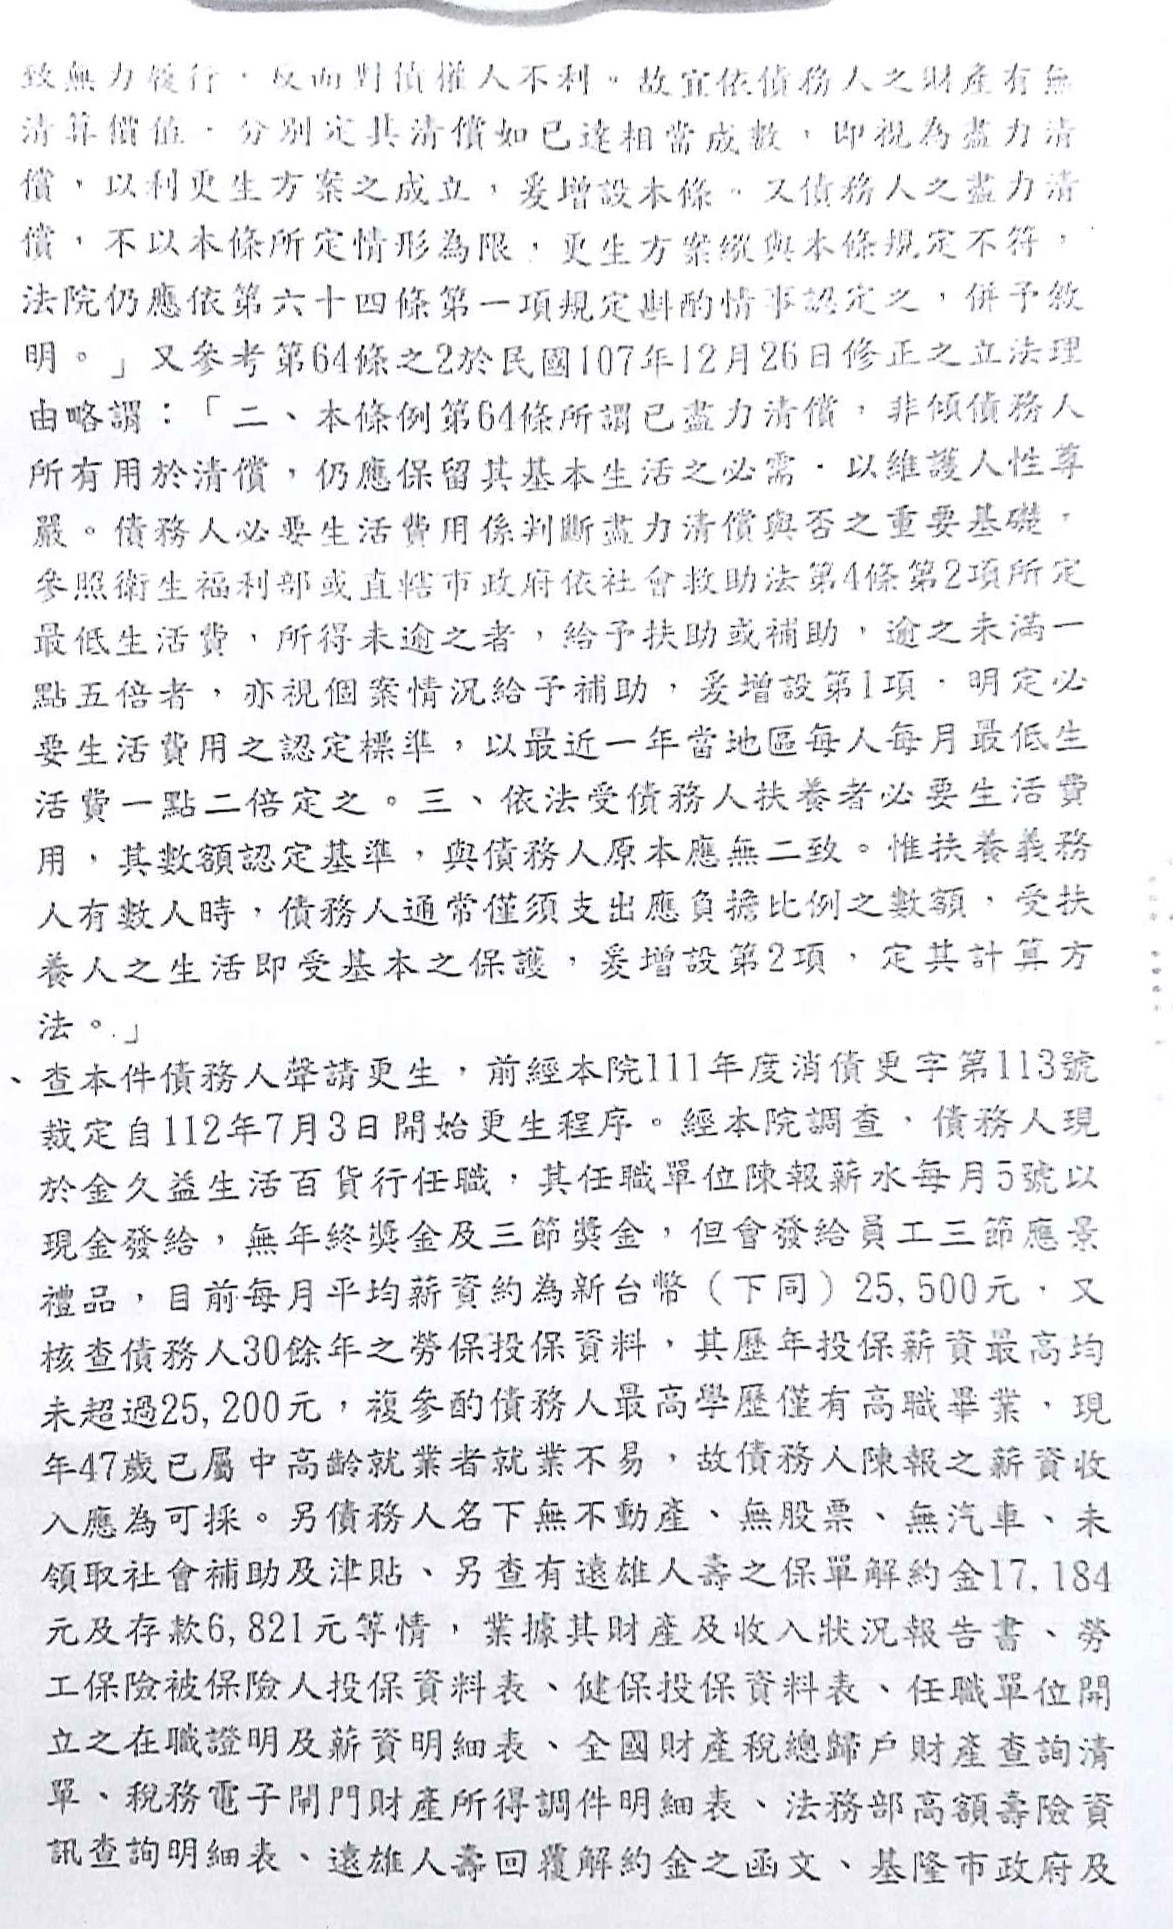 致無力履行，反而對債權人不利。故宜依債務人之財產有無
清算價值，分別定其清償如已達相當成數，即視為盡力清
償，以利更生方案之成立，爰增設本條。又債務人之盡力清
償，不以本條所定情形為限，更生方案縱與本條規定不符，
法院仍應依第六十四條第一項規定斟酌情事認定之，併予敘
明。」又參考第64條之2於民國107年12月26日修正之立法理
由略謂：「二、本條例第64條所謂已盡力清償，非傾債務人
所有用於清償，仍應保留其基本生活之必需，以維護人性尊
嚴。債務人必要生活費用係判斷盡力清償與否之重要基礎，
參照衛生福利部或直轄市政府依社會救助法第4條第2項所定
最低生活費，所得未逾之者，給予扶助或補助，逾之未滿一
點五倍者，亦視個案情況給予補助，爰增設第1項，明定必
要生活費用之認定標準，以最近一年當地區每人每月最低生
活費一點二倍定之。三、依法受債務人扶養者必要生活費
用，其數額認定基準，與債務人原本應無二致。惟扶養義務
人有數人時，債務人通常僅須支出應負擔比例之數額，受扶
養人之生活即受基本之保護，爰增設第2項，定其計算方
法。」
、查本件債務人聲請更生，前經本院111年度消債更字第113號
裁定自112年7月3日開始更生程序。經本院調查，債務人現
於金久益生活百貨行任職，其任職單位陳報薪水每月5號以
現金發給，無年終獎金及三節獎金，但會發給員工三節應景
禮品，目前每月平均薪資約為新台幣（下同）25,500元，又
核查債務人30餘年之勞保投保資料，其歷年投保薪資最高均
未超過25,200元，複參酌債務人最高學歷僅有高職畢業，現
年47歲已屬中高齡就業者就業不易，故債務人陳報之薪資收
入應為可採。另債務人名下無不動產、無股票、無汽車、未
領取社會補助及津貼、另查有遠雄人壽之保單解約金17,184
元及存款6,821元等情，業據其財產及收入狀況報告書、勞
工保險被保險人投保資料表、健保投保資料表、任職單位開
立之在職證明及薪資明細表、全國財產稅總歸戶財產查詢清
單、稅務電子閘門財產所得調件明細表、法務部高額壽險資
訊查詢明細表、遠雄人壽回覆解約金之函文、基隆市政府及